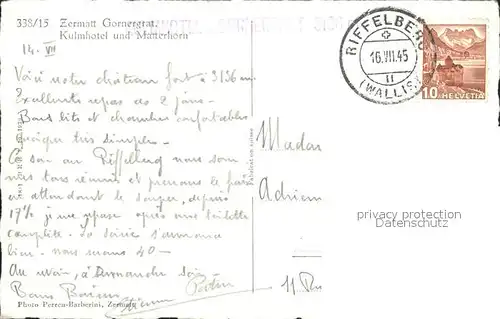 338/15 Zermatt Gornergrat,
Kulmhotel und Matterhorn
14. VII
Voici notre château fort à 3136 m
Excellents repas ces 2 jours -
Bons lits et chambres confortables
quoique très simples -
Ce soir au Riffelberg nous som
mes tous réunis et prenons le frais
en attendant le souper, depuis
17½ je me repose après une toilette
complète. La soirée s'annonce
bien - nous serons 40 -
Au revoir, à Dimanche soir
Bons Baisers
Etienne
Photo Perren-Barberini, Zermatt
RIFFELBERG
16.VII.45
(WALLIS)
10 HELVETIA
Madam
Adrien
11 Ru
privacy protection
watermark